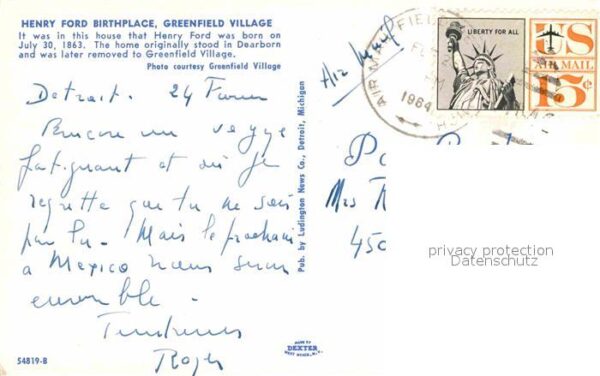 HENRY FORD BIRTHPLACE, GREENFIELD VILLAGE
It was in this house that Henry Ford was born on
July 30, 1863. The home originally stood in Dearborn
and was later removed to Greenfield Village.
Photo courtesy Greenfield Village
Air Mail
Detroit. 24
Encore un voyage
fatigant et où je
regrette que tu ne sois
pas là. Mais le prochain
a Mexico nous serons
ensemble.
Tendresses
Roger
54819-B
Pub. by Ludington News Co., Detroit, Michigan
MADE BY
DEXTER
WEST NYACK, N.Y.
AIR MAIL FIELD
1964
LIBERTY FOR ALL
US
AIR MAIL
15¢
Mrs
450
privacy protection
Datenschutz